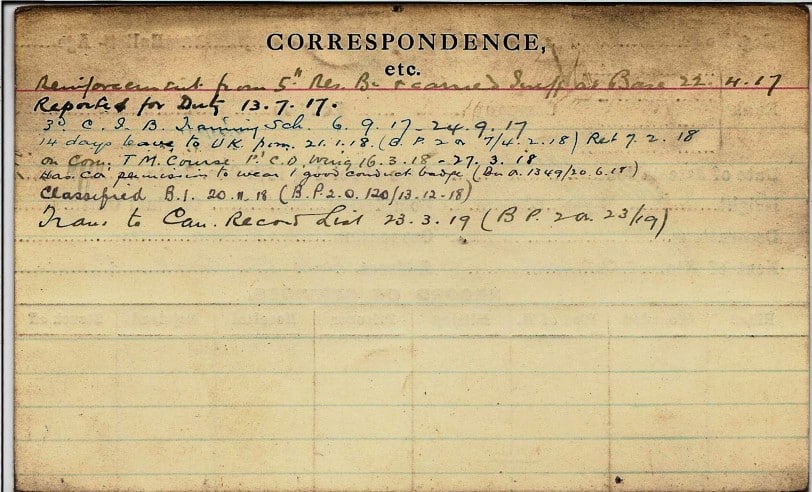 CORRESPONDENCE,
etc.
Reinforcement from 5" Res. Bn & carried Base 22.4.17
Reported for Duty 13.7.17.
3d C.I.B. Training Sch. 6.9.17 - 24.9.17
14 days leave to U.K. from. 21.1.18. (d. P. 2 o 7/4.2.18) Ret 7.2.18
on Com. T.M. Course 1st C.O. wing 16.3.18 - 27.3.18
Has C.O. permission to wear 1 good conduct badge (Bn O. 1349/20.6.18)
Classified B.1. 20.11.18 (B.P.2.O. 120/13-12-18)
Trans to Can. Record List 23.3.19 (B P. 2 o. 23/19)